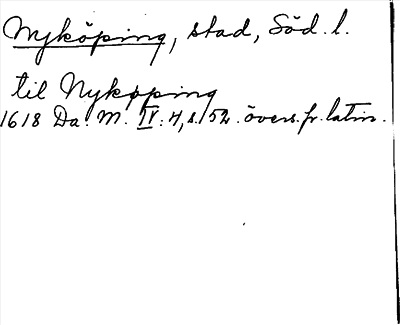 Nyköping, stad, Söd. l.
til Nykøping
1618 Da. M. IV: 4, s. 52. övers. fr. latin.